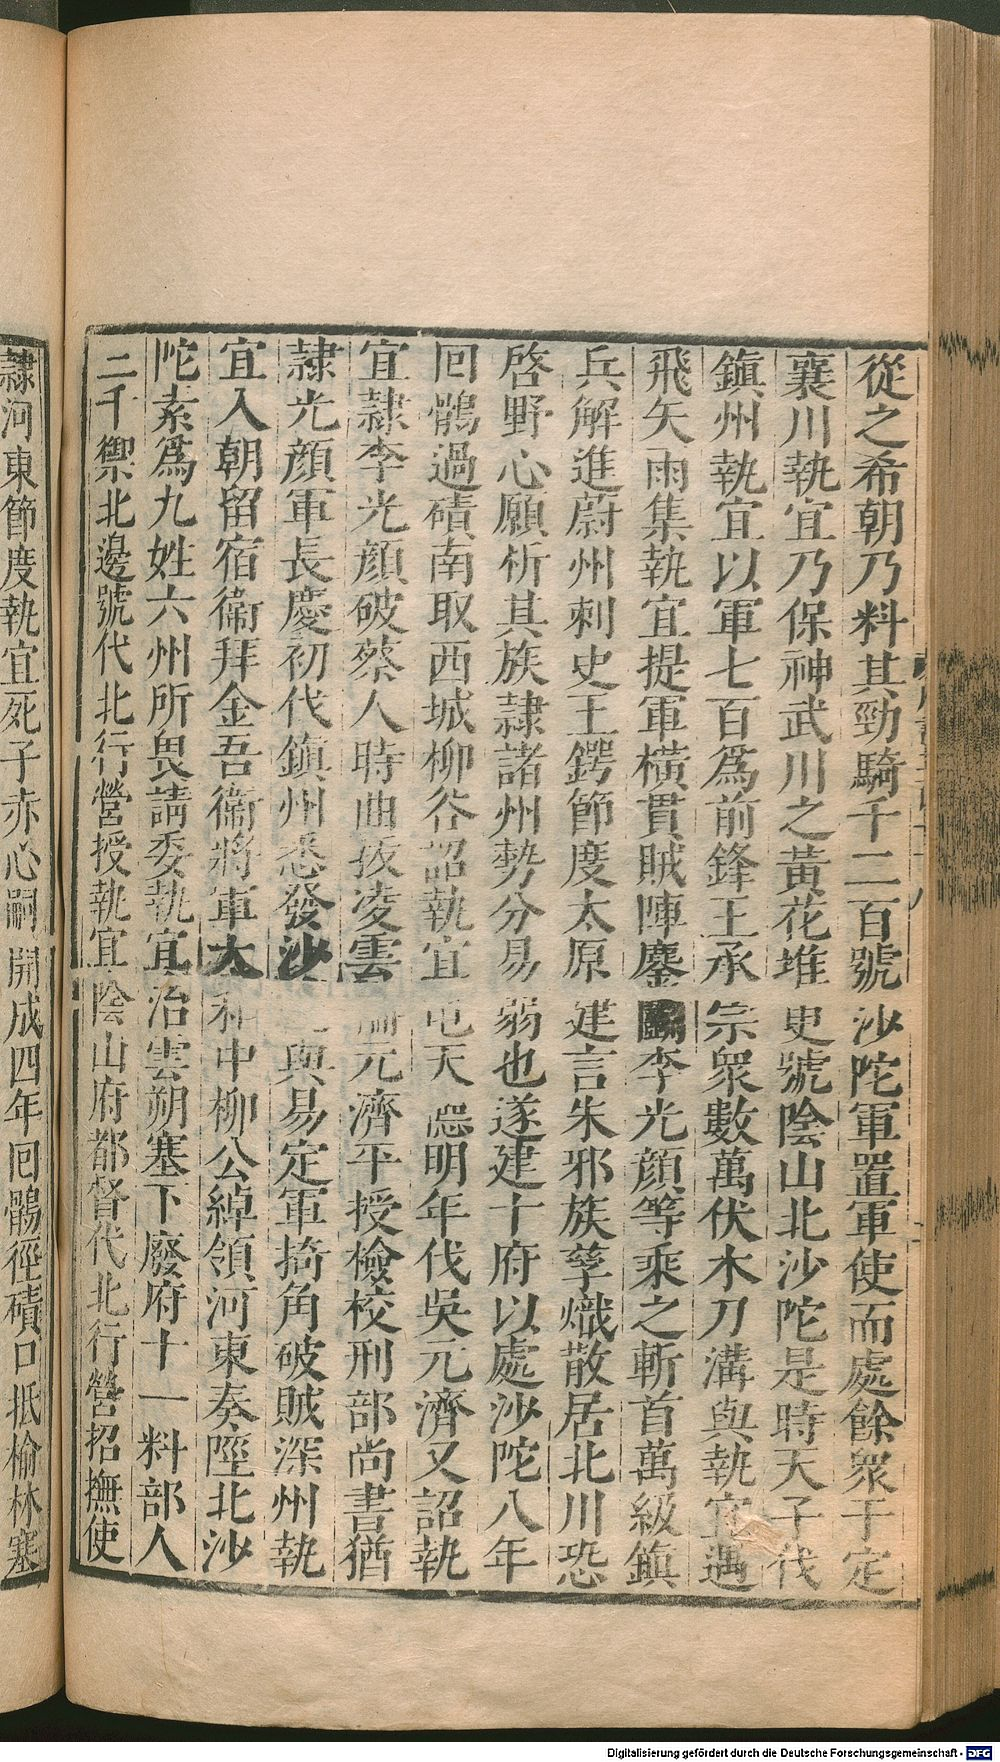 從之希朝乃料其勁騎千二百號沙陀軍置軍使而處餘衆于定
襄川執宜乃保神武川之黃花堆更號陰山北沙陀是時天子伐
鎮州執宜以軍七百爲前鋒王承宗衆數萬伏木刀溝與執宜遇
飛矢雨集執宜提軍橫貫賊陣鏖鬭李光顔等乘之斬首萬級鎮
兵解進蔚州刺史王鍔節度太原建言朱邪族孳熾散居北川恐
啓野心願析其族隷諸州勢分易弱也遂建十府以處沙陀八年
回鶻過磧南取西城柳谷詔執宜屯天德明年伐吳元濟又詔執
宜隷李光顔破蔡人時曲拔凌雲元濟平授檢校刑部尚書猶
隷光顔軍長慶初伐鎮州悉發沙與易定軍掎角破賊深州執
宜入朝留宿衞拜金吾衞將軍太和中柳公綽領河東奏陘北沙
陀素爲九姓六州所畏請委執宜治雲朔塞下廢府十一料部人
二千禦北邊號代北行營授執宜陰山府都督代北行營招撫使
隷河東節度執宜死子赤心嗣開成四年回鶻徑磧口抵榆林塞
Digitalisierung gefördert durch die Deutsche Forschungsgemeinschaft - DFG